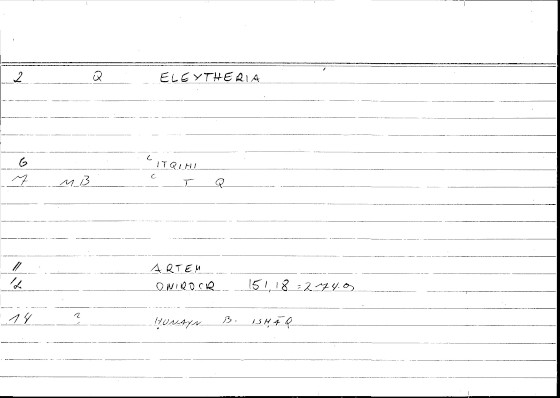 2 Q ELEYTHERIA
6 ʿITQIHI
7 MB ʿ T Q
11 ARTEM
12 ONIROCR 151,18 = 274.9
14 ? ḤUNAYN B. ISḤĀQ